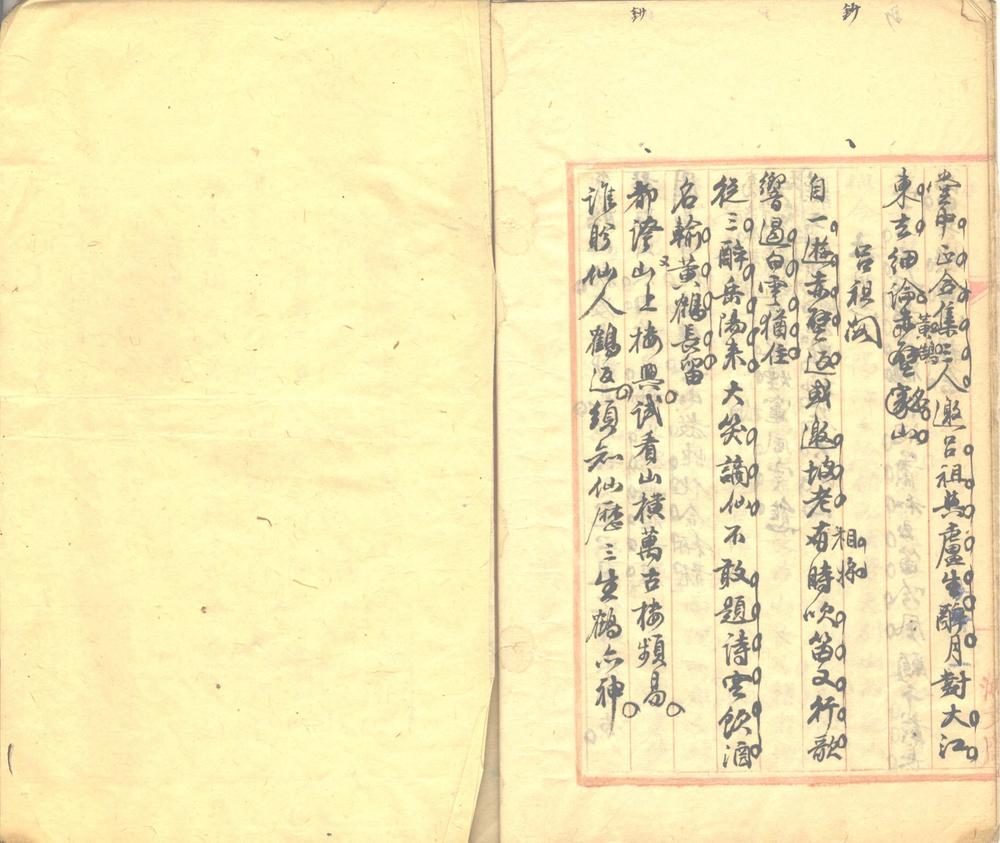 鈔
鈔
堂中正合集三人邀呂祖與盧生醉月對大江
東去細論赤壁家山
黃鶴
呂祖閣
自一遊赤壁返或邀坡老有時吹笛又行歌
相揪
響遏白雲猶住
從三醉岳陽來大笑謫仙不敢題詩空飲酒
名輸黃鶴長留
又
都證山上樓與試看山橫萬古樓頻易
誰盼仙人鶴返須知仙歷三生鶴亦神